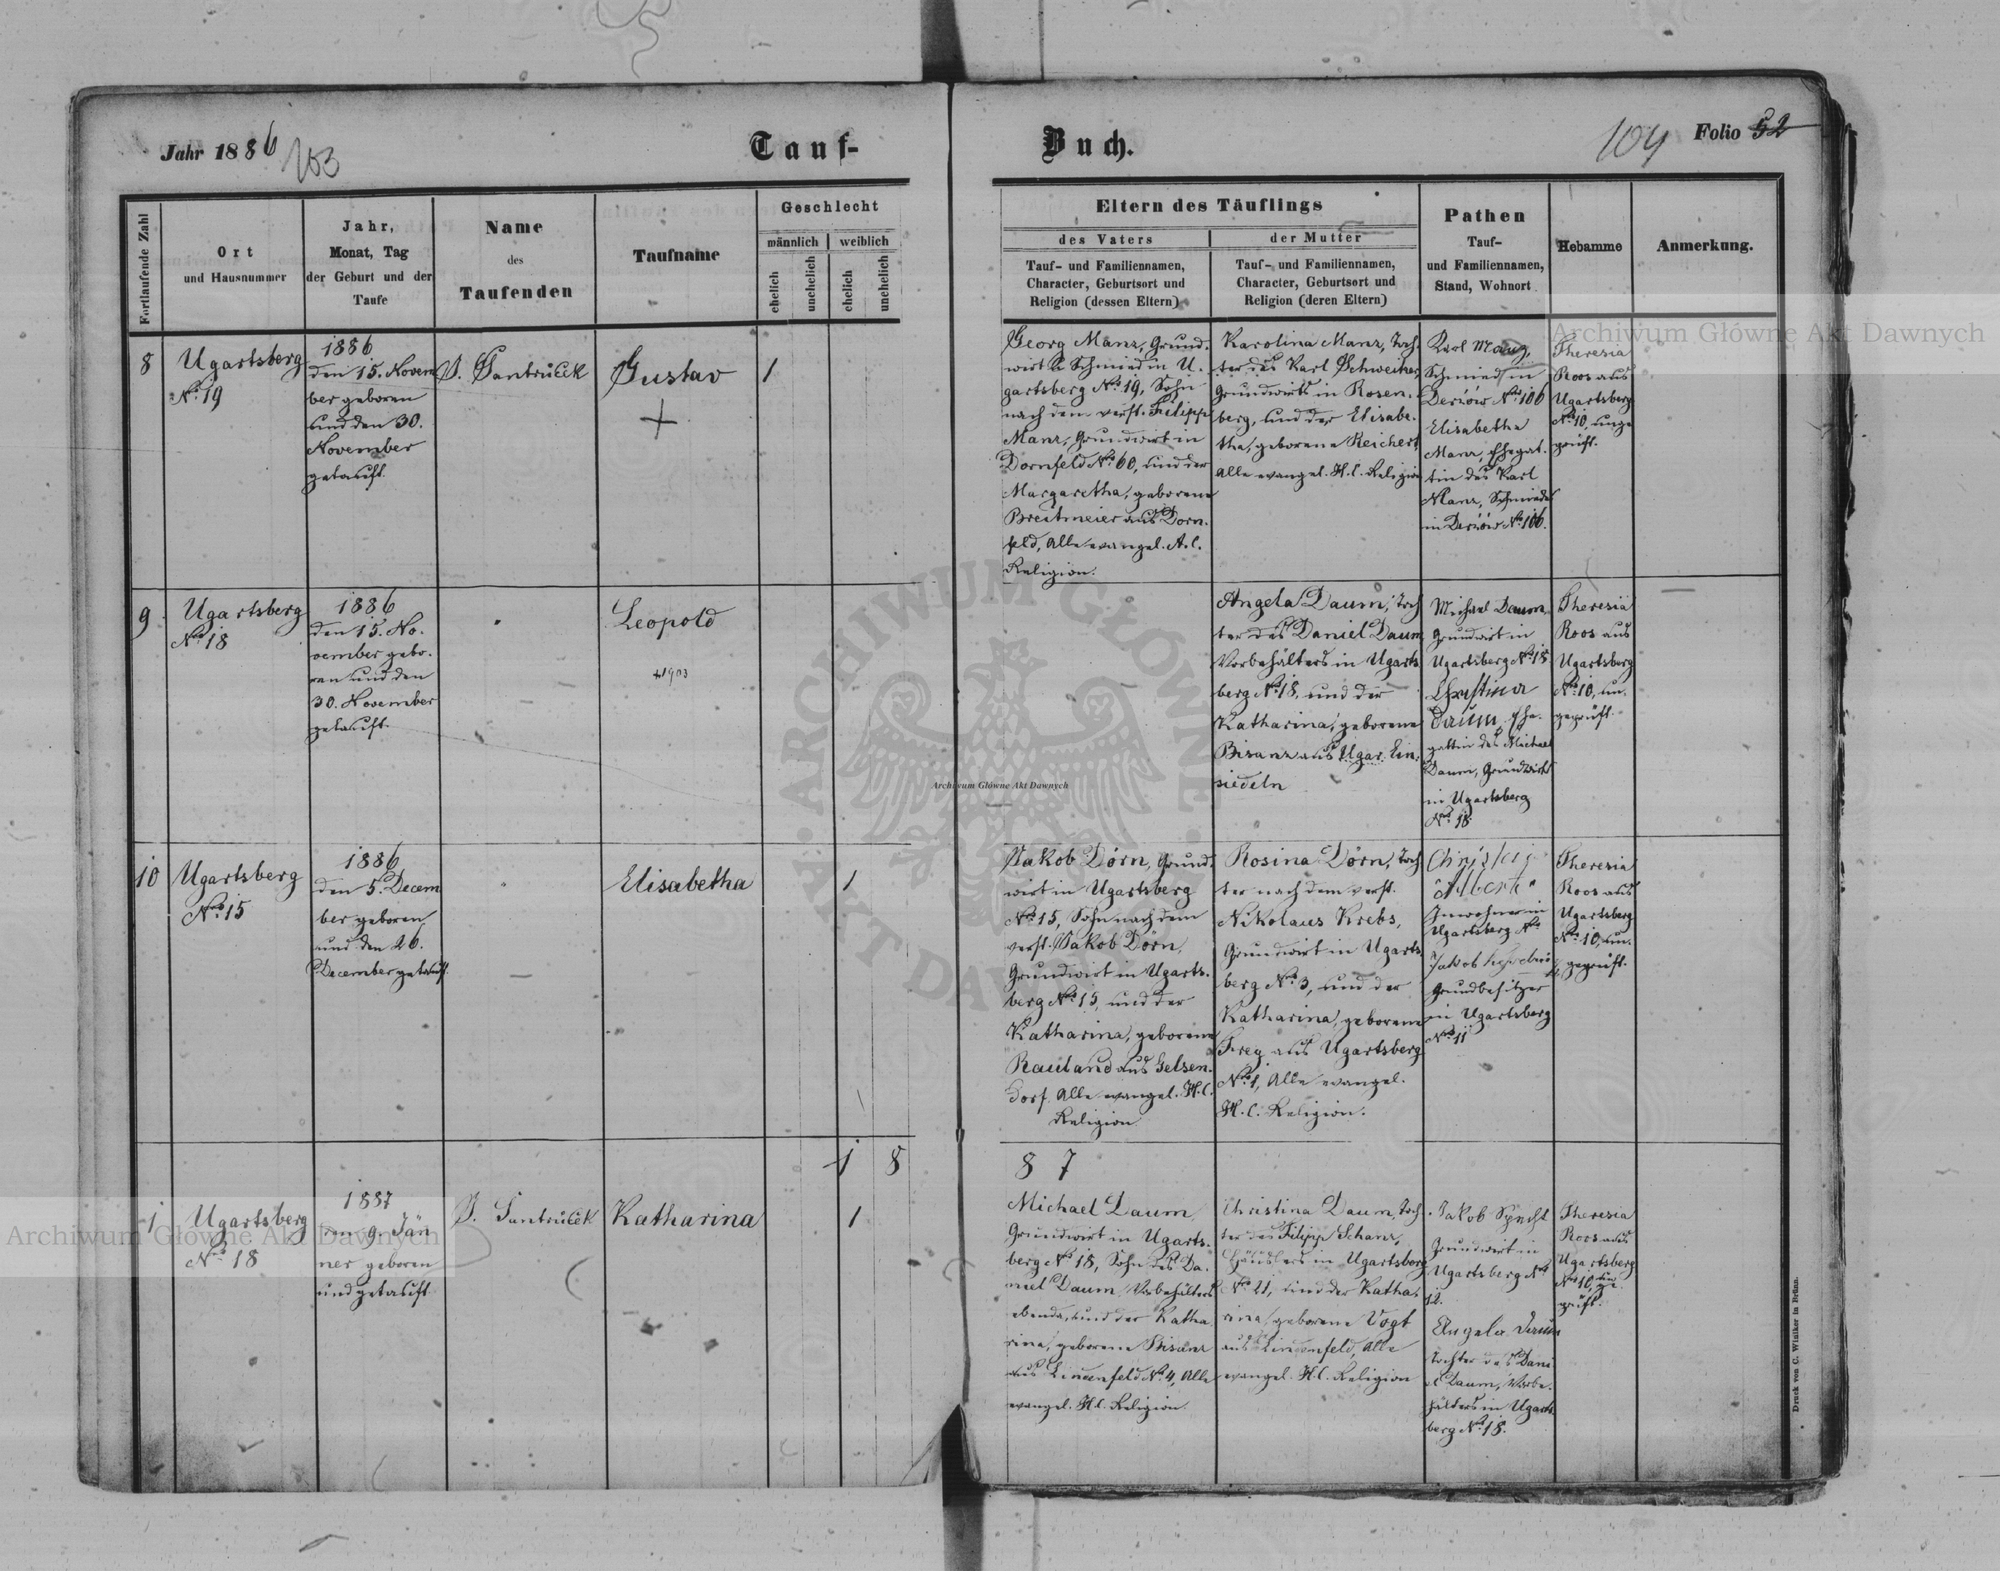 Jahr 1886
103
Tauf-
Buch.
104
Folio 52
Fortlaufende Zahl
Ort
und Hausnummer
Jahr,
Monat, Tag
der Geburt und der
Taufe
Name
des
Taufenden
Taufname
Geschlecht
männlich
weiblich
ehelich
unehelich
ehelich
unehelich
Eltern des Täuflings
des Vaters
der Mutter
Tauf- und Familiennamen,
Character, Geburtsort und
Religion (dessen Eltern)
Tauf- und Familiennamen,
Character, Geburtsort und
Religion (deren Eltern)
Pathen
Tauf-
und Familiennamen,
Stand, Wohnort
Hebamme
Anmerkung.
8
Ugartsberg
No 19
1886
den 15. Novem
ber geboren
und den 30.
November
getauft.
J. Santruček
Gustav
+
1
Georg Manz, Grund-
wirt & Schmied in U-
gartsberg No 19, Sohn
nach dem verst. Filipp
Manz, Grundwirt in
Dornfeld No 60, und der
Margaretha, geborene
Breitmeier aus Dorn-
feld, Alle evangel. A.C.
Religion.
Karolina Manz, Toch-
ter des Karl Schweitzer,
Grundwirts in Rosen-
berg, und der Elisabe-
tha, geborene Reichert,
Alle evangel. H.C. Religion
Karl Manz,
Schmied in
Derżów No 106
Elisabetha
Manz, Ehegat-
tin des Karl
Manz, Schmiedes
in Derżów No 106.
Theresia
Roos aus
Ugartsberg
No 10, unge
prüft.
9
Ugartsberg
No 18
1886
den 15. No-
vember gebo-
ren und den
30. November
getauft.
Leopold
+1903
Angela Daum, Toch
ter des Daniel Daum
Vorbehälters in Ugarts
berg No 18, und der
Katharina, geborene
Bisanz aus Ugar. Ein-
siedeln
Michael Daum,
Grundwirt in
Ugartsberg No 18
Christina
Daum, Ehe-
gattin des Michael
Daum, Grundwirts
in Ugartsberg
No 18
Theresia
Roos aus
Ugartsberg
No 10, un-
geprüft.
10
Ugartsberg
No 15
1886
den 5. Decem
ber geboren
und den 26.
December getauft.
Elisabetha
1
Jakob Dörn, Grund-
wirt in Ugartsberg
No 15, Sohn nach dem
verst. Jakob Dörn,
Grundwirt in Ugarts-
berg No 15, und der
Katharina, geborene
Rauland aus Gelsen-
dorf. Alle evangel. H.C.
Religion
Rosina Dörn, Toch
ter nach dem verst.
Nikolaus Krebs,
Grundwirt in Ugarts
berg No 3, und der
Katharina, geborene
Frey aus Ugartsberg
No 1, Alle evangel.
H.C. Religion.
Albert
Inwohner in
Ugartsberg No
Jakob
Grundbesitzer
in Ugartsberg
No 11
Theresia
Roos aus
Ugartsberg
No 10, un-
geprüft.
1 8
8 7
1
Ugartsberg
No 18
1887
den 9. Jän
ner geboren
und getauft
J. Santruček
Katharina
1
Michael Daum
Grundwirt in Ugarts-
berg No 18, Sohn des Da-
niel Daum, Vorbehälters
ebenda, und der Katha
rina, geborene Bisanz
aus Lindenfeld No 4, Alle
evangel. H.C. Religion.
Christina Daum, Toch
ter des Filipp Schanz,
Häuslers in Ugartsberg
No 21, und der Katha-
rina, geborene Vogt
aus Lindenfeld, Alle
evangel. H.C. Religion
Jakob Specht
Grundwirt in
Ugartsberg No
12.
Angela Daum
Tochter des Dani
el Daum, Vorbe-
hälters in Ugarts
berg No 18.
Theresia
Roos aus
Ugartsberg
No 10, un
ge-
prüft.
Druck von C. Winiker in Brünn.
Archiwum Główne Akt Dawnych
Archiwum Główne Akt Dawnych
Archiwum Główne Akt Dawnych
ARCHIWUM GŁÓWNE AKT DAWNYCH